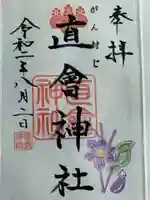 奉拝
がん封じ
直會神社
令和二年八月二日